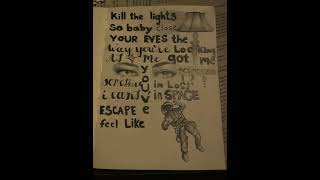 Kill the lights
So baby close
YOUR EYES the
way you're Looking
AT Me got me
you've
i'm Lost
i cant in SPACE
ESCAPE
feel Like